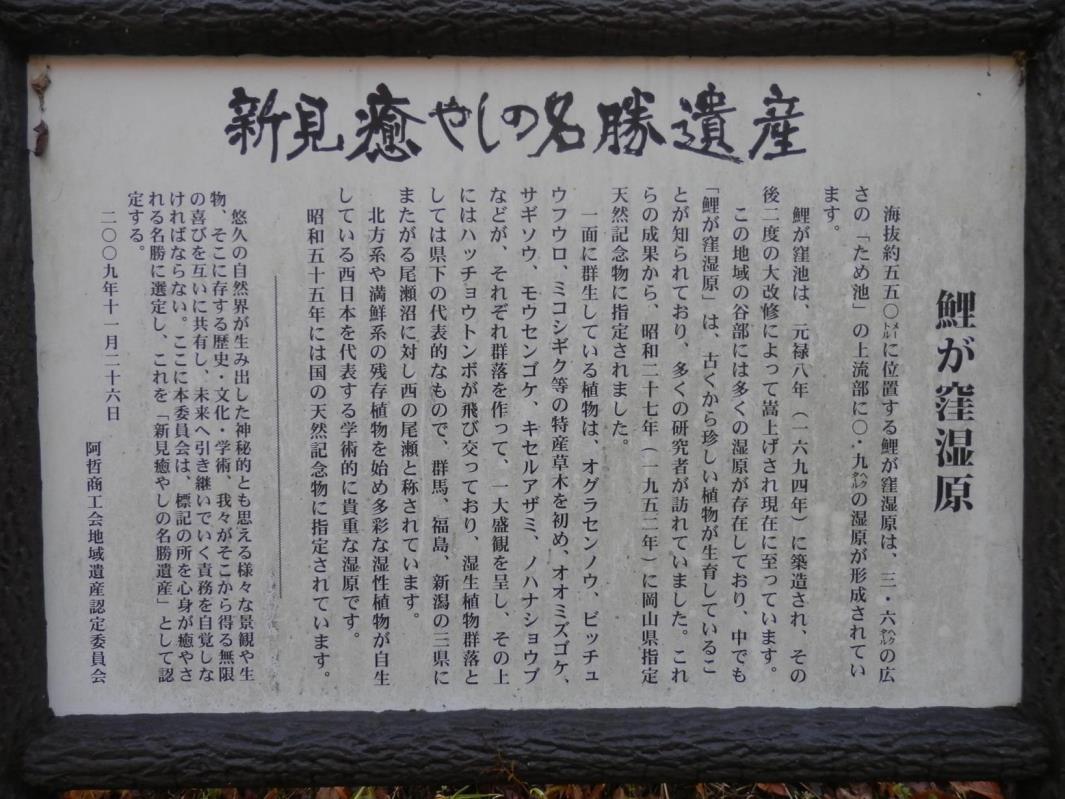 新見癒やしの名勝遺産
鯉が窪湿原
海抜約五五〇メートルに位置する鯉が窪湿原は、三・六ヘクタールの広
さの「ため池」の上流部に〇・九ヘクタールの湿原が形成されてい
ます。
鯉が窪池は、元禄八年（一六九四年）に築造され、その
後二度の大改修によって嵩上げされ現在に至っています。
この地域の谷部には多くの湿原が存在しており、中でも
「鯉が窪湿原」は、古くから珍しい植物が生育しているこ
とが知られており、多くの研究者が訪れていました。これ
らの成果から、昭和二十七年（一九五二年）に岡山県指定
天然記念物に指定されました。
一面に群生している植物は、オグラセンノウ、ビッチュ
ウフウロ、ミコシギク等の特産草木を初め、オオミズゴケ、
サギソウ、モウセンゴケ、キセルアザミ、ノハナショウブ
などが、それぞれ群落を作って、一大盛観を呈し、その上
にはハッチョウトンボが飛び交っており、湿生植物群落と
しては県下の代表的なもので、群馬、福島、新潟の三県に
またがる尾瀬沼に対し西の尾瀬と称されています。
北方系や満鮮系の残存植物を始め多彩な湿性植物が自生
している西日本を代表する学術的に貴重な湿原です。
昭和五十五年には国の天然記念物に指定されています。
悠久の自然界が生み出した神秘的とも思える様々な景観や生
物、そこに存する歴史・文化・学術、我々がそこから得る無限
の喜びを互いに共有し、未来へ引き継いでいく責務を自覚しな
ければならない。ここに本委員会は、標記の所を心身が癒やさ
れる名勝に選定し、これを「新見癒やしの名勝遺産」として認
定する。
二〇〇九年十一月二十六日
阿哲商工会地域遺産認定委員会